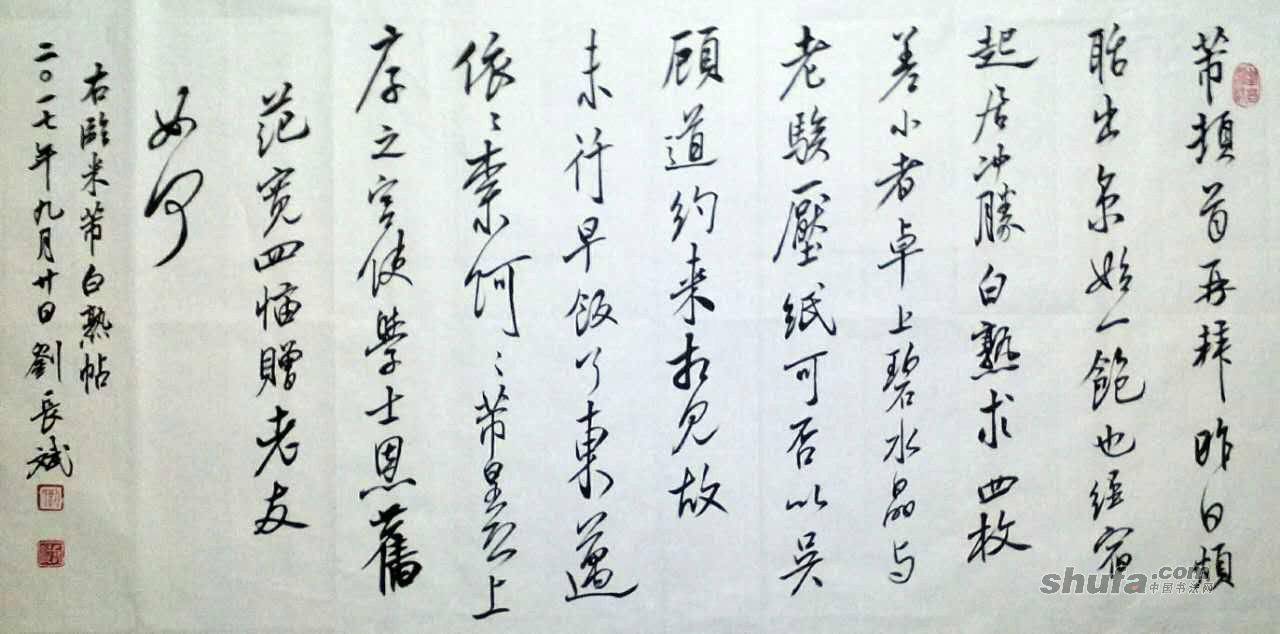 芾頓首再拜昨日煩
聒出京始一飽也經宿
起居冲勝白熟求四枚
差小者卓上碧水晶与
老駿壓紙可否以吴
顧道約来相见故
未行早飯了東邁
依〻柰何〻芾皇恐上
序之宫使學士恩舊
范宽四幅贈老友
如何
右臨米芾白熟帖
二〇一七年九月廿日劉長斌
shufa.com
中国书法网